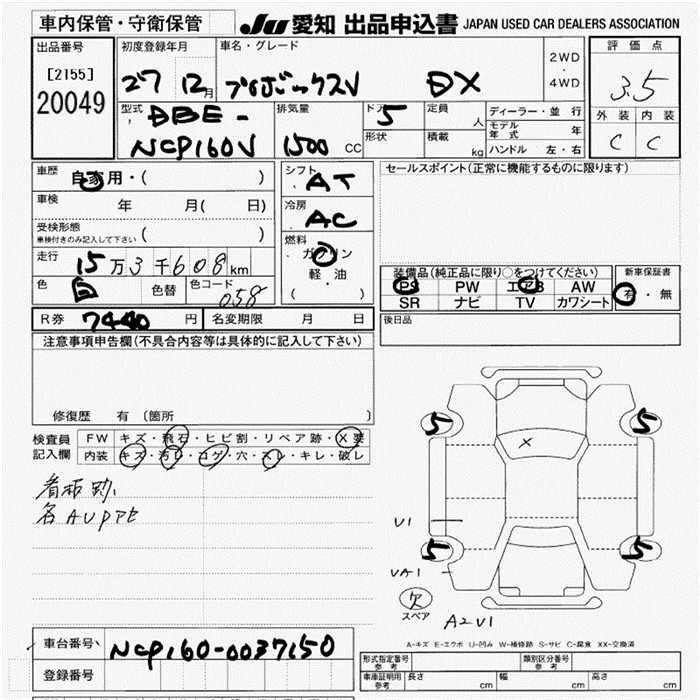 車内保管・守衛保管
JU 愛知 出品申込書 JAPAN USED CAR DEALERS ASSOCIATION
出品番号
[2155]
20049
初度登録年月
27 12月
車名・グレード
プロボックスV DX
2WD
・
4WD
評価点
3.5
外装 内装
C C
型式
DBE-
NCP160V
排気量
1500 CC
ドア 5
形状
定員 人
積載 kg
ディーラー・並行
モデル年式 年
ハンドル 左・右
車歴 自家用・( )
車検 年 月( 日)
受検形態
車検付きのみ記入して下さい ( )
走行 15万3千608km
色 白 色替 色コード 058
シフト AT
冷房 AC
燃料
ガソリン
軽・油
( )
セールスポイント(正常に機能するものに限ります)
装備品(純正品に限り○をつけてください)
PS PW エアB AW
SR ナビ TV カワシート
新車保証書
有・無
R券 7440円 名変期限 月 日
後日品
注意事項申告欄(不具合内容等は具体的に記入して下さい)
修復歴 有 〔箇所 〕
検査員記入欄
FW キズ・飛石・ヒビ割・リペア跡・X要
内装 キズ・汚レ・コゲ・穴・スレ・キレ・破レ
看板跡、
5 5
X
U1
5 5
VA1
欠
スペア
A2 U1
A-キズ E-エクボ U-凹み W-補修跡 S-サビ C-腐食 XX-交換済
車台番号 NCP160-0037150
登録番号
形式指定番号 参考
類別区分番号 参考
車庫証明用 参考 長さ cm 幅 cm 高さ cm